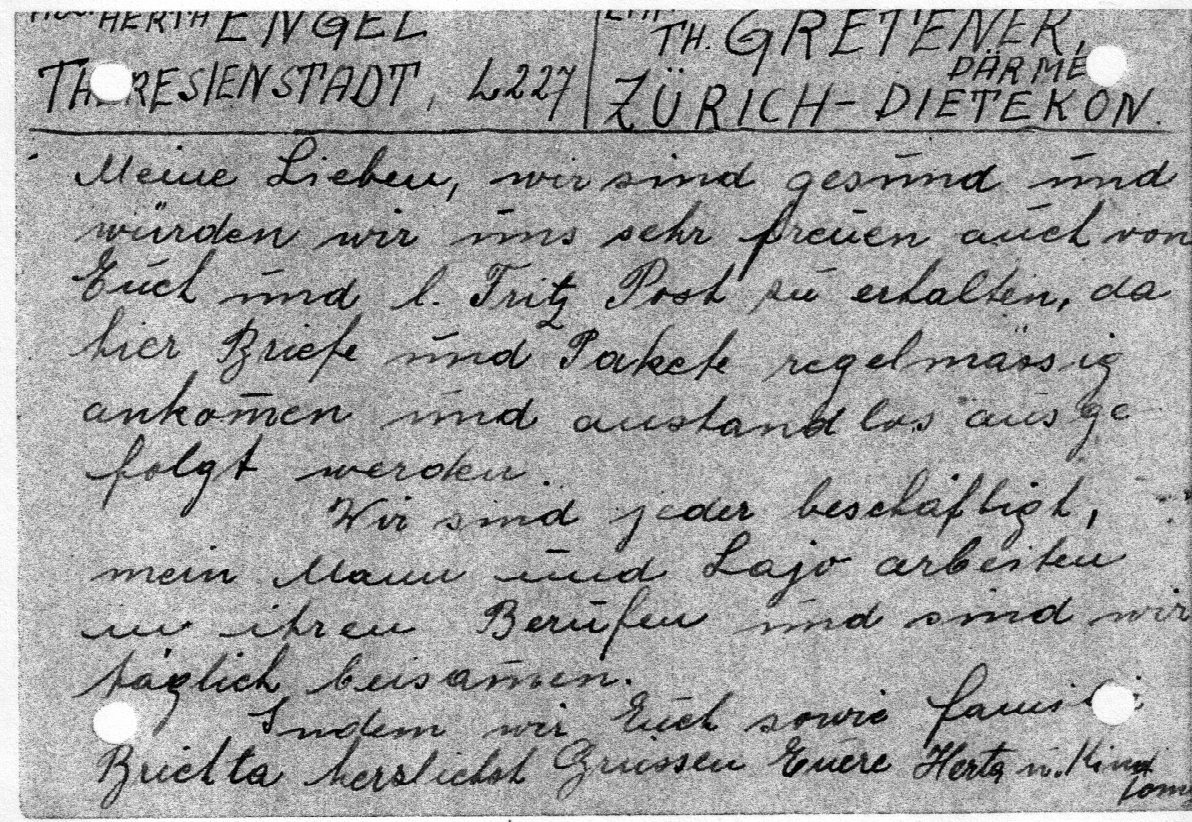 HERTH ENGEL
TH RESIENSTADT, L227
TH. GRETENER,
DÄRME
ZÜRICH-DIETEKON.
Meine Lieben, wir sind gesund und
würden wir uns sehr freuen auch von
Euch und l. Fritz Post zu erhalten, da
hier Briefe und Pakete regelmässig
ankom̄en und anstandlos ausge
folgt werden.
Wir sind jeder beschäftigt,
mein Mann und Lajo arbeiten
in ihren Berufen und sind wir
täglich beisam̄en.
Indem wir Euch sowie
Brichta herzlichst Grüssen Euere Herta u.